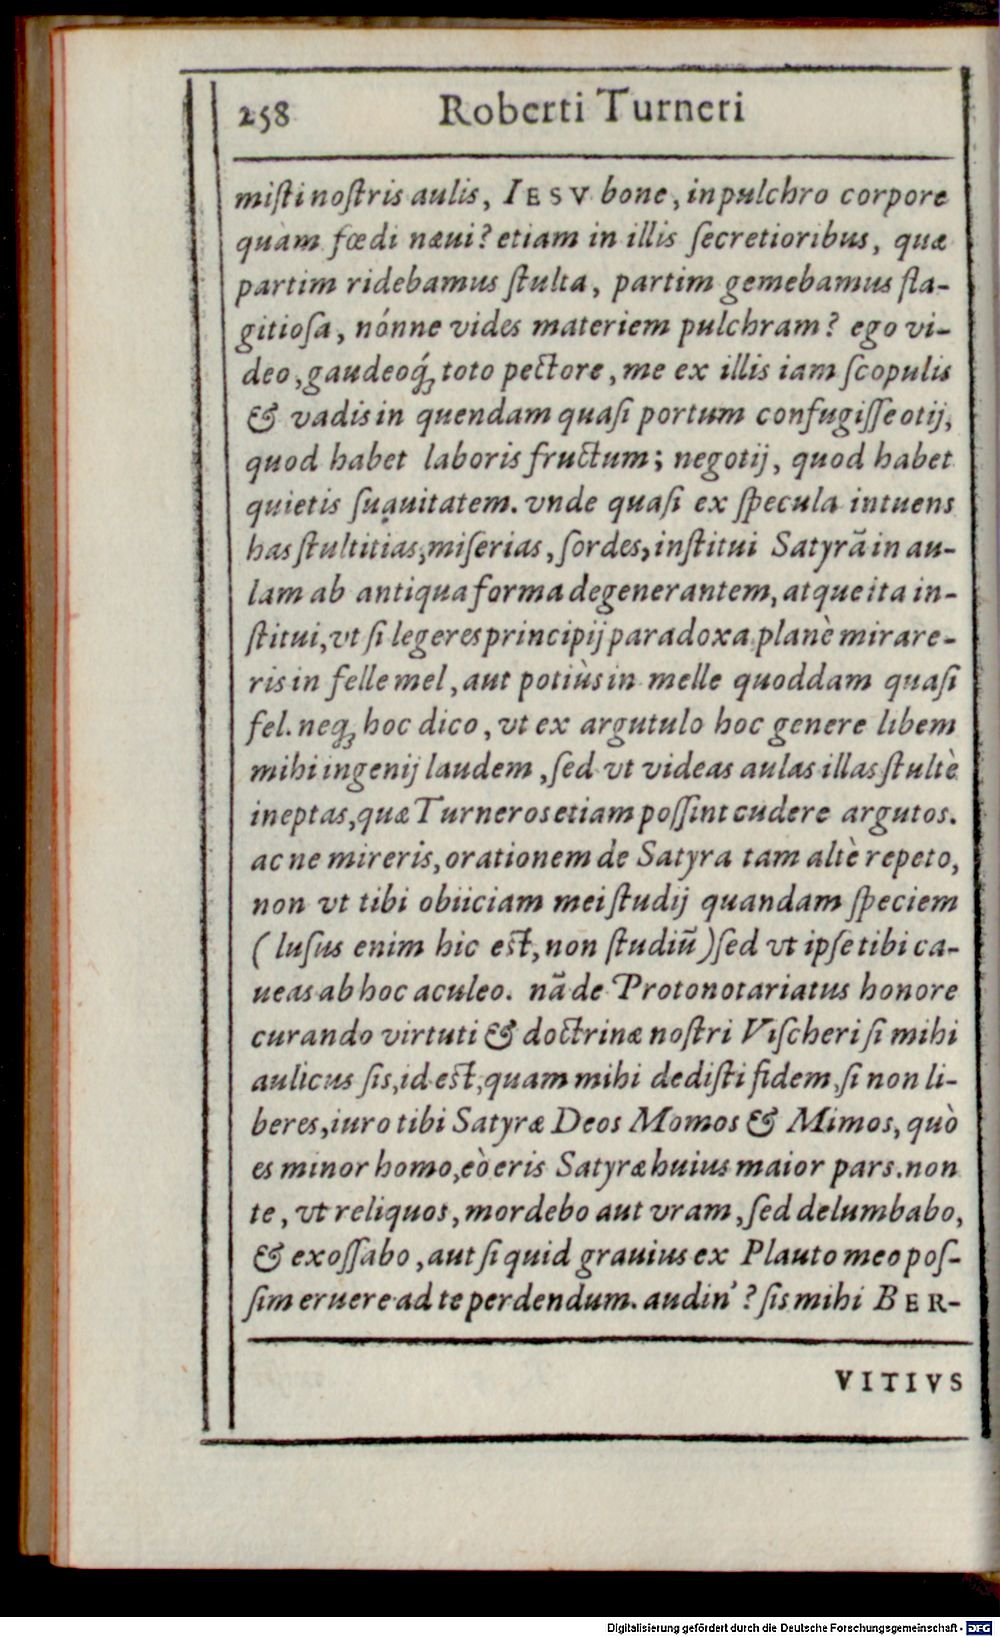 258 Roberti Turneri
miſti noſtris aulis, IESV bone, in pulchro corpore
quàm fœdi næui? etiam in illis ſecretioribus, quæ
partim ridebamus ſtulta, partim gemebamus fla-
gitioſa, nónne vides materiem pulchram? ego vi-
deo, gaudeoq́; toto pectore, me ex illis iam ſcopulis
& vadis in quendam quaſi portum confugiſſe otij,
quod habet laboris fructum; negotij, quod habet
quietis ſuauitatem. vnde quaſi ex ſpecula intuens
has ſtultitias, miſerias, ſordes, inſtitui Satyrã in au-
lam ab antiqua forma degenerantem, atque ita in-
ſtitui, vt ſi legeres principij paradoxa planè mirare-
ris in felle mel, aut potiùs in melle quoddam quaſi
fel. neq; hoc dico, vt ex argutulo hoc genere libem
mihi ingenij laudem, ſed vt videas aulas illas ſtultè
ineptas, quæ Turneros etiam poſſint cudere argutos.
ac ne mireris, orationem de Satyra tam altè repeto,
non vt tibi obiiciam mei ſtudij quandam ſpeciem
(luſus enim hic eſt, non ſtudiũ) ſed vt ipſe tibi ca-
ueas ab hoc aculeo. nã de Protonotariatus honore
curando virtuti & doctrinæ noſtri Viſcheri ſi mihi
aulicus ſis, id eſt, quam mihi dediſti fidem, ſi non li-
beres, iuro tibi Satyræ Deos Momos & Mimos, quò
es minor homo, eò eris Satyræ huius maior pars. non
te, vt reliquos, mordebo aut vram, ſed delumbabo,
& exoſſabo, aut ſi quid grauius ex Plauto meo poſ-
ſim eruere ad te perdendum. audin'? ſis mihi BER-
VITIVS
Digitalisierung gefördert durch die Deutsche Forschungsgemeinschaft - DFG